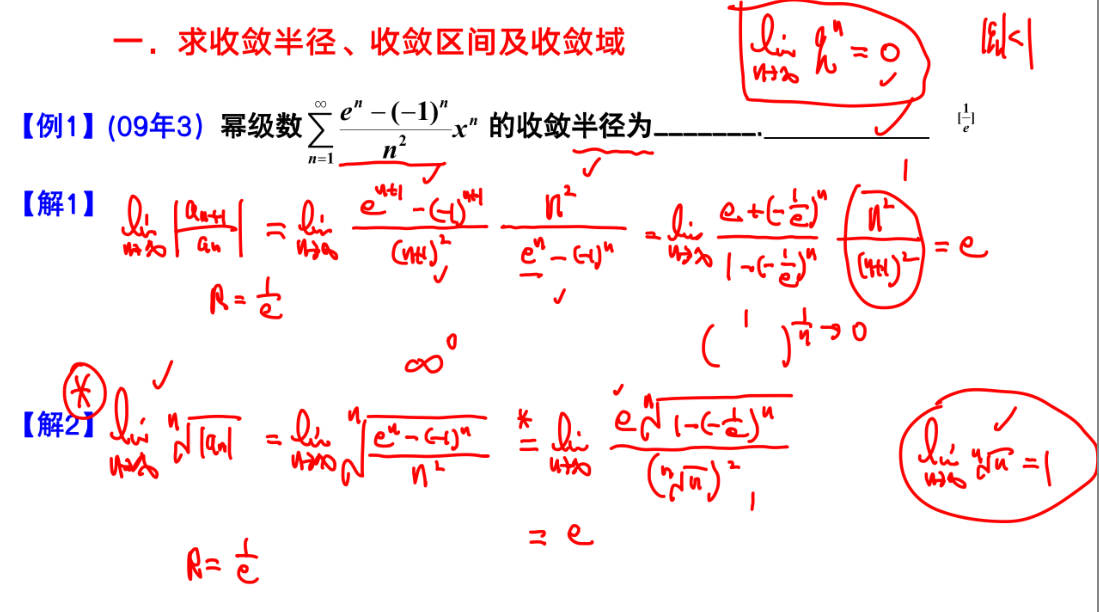 一．求收敛半径、收敛区间及收敛域
lim_{n→∞} q^n = 0
|q|<1
【例1】(09年3) 幂级数 ∑_{n=1}^{∞} \frac{e^n-(-1)^n}{n^2} x^n 的收敛半径为________.____________ [\frac{1}{e}]
【解1】 lim_{n→∞} |\frac{a_{n+1}}{a_n}| = lim_{n→∞} \frac{e^{n+1}-(-1)^{n+1}}{(n+1)^2} \frac{n^2}{e^n-(-1)^n} = lim_{n→∞} \frac{e+(-\frac{1}{e})^n}{1-(-\frac{1}{e})^n} \frac{n^2}{(n+1)^2} = e
1
R = \frac{1}{e}
( 1 )^{\frac{1}{n}→0}
∞^0
* 【解2】 lim_{n→∞} \sqrt[n]{|a_n|} = lim_{n→∞} \sqrt[n]{\frac{e^n-(-1)^n}{n^2}} \overset{*}{=} lim_{n→∞} \frac{e\sqrt[n]{1-(-\frac{1}{e})^n}}{(\sqrt[n]{n})^2} 1
lim_{n→∞} \sqrt[n]{n} = 1
= e
R = \frac{1}{e}